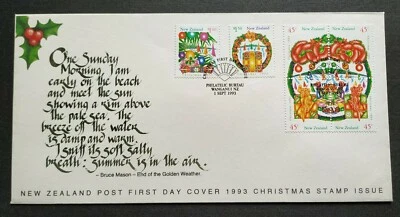 One Sunday
Morning, I am
early on the beach
and meet the sun
showing a rim above
the pale sea. The
breeze off the water
is damp and warm.
I sniff its soft salty
breath: summer is in the air.
– Bruce Mason – End of the Golden Weather.
New Zealand
$1.00
New Zealand
$1.50
FIRST DAY COVER
PHILATELIC BUREAU
WANGANUI NZ
1 SEPT 1993
45c
New Zealand
New Zealand
45c
45c
New Zealand
New Zealand
45c
NEW ZEALAND POST FIRST DAY COVER 1993 CHRISTMAS STAMP ISSUE